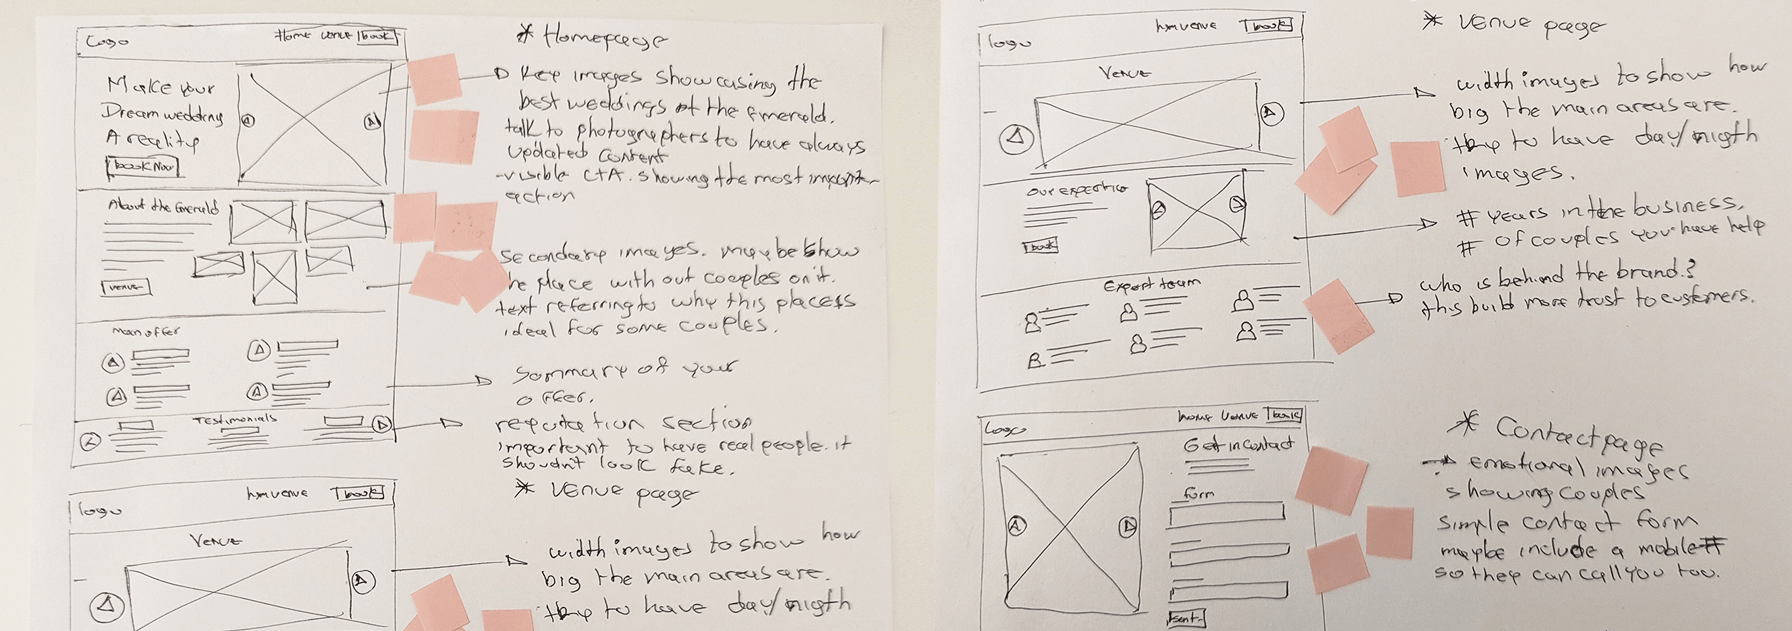 Logo
Home Venue book
* Homepage
Make your
Dream wedding
A reality
book Now
Key images showcasing the
best weddings of the Emerald.
talk to photographers to have always
updated content
-visible CTA. showing the most important
action
About the Emerald
venue
Secondary images. maybe show
he place with out couples on it.
text referring to why this place is
ideal for some couples.
Main offer
Summary of your
offer.
Testimonials
reputation section
important to have real people. it
shouldn't look fake.
logo
venue book
* Venue page
VENUE
width images to show how
big the main areas are.
try to have day/nigth
logo
venue book
* Venue page
VENUE
width images to show how
big the main areas are.
try to have day/nigth
images.
Our expertice
book
# years in the business.
# of couples you have help
Expert team
who is behind the brand?
this build more trust to customers.
Logo
home Venue book
* Contact page
Get in Contact
form
sent
emotional images
showing couples
simple contact form
maybe include a mobile #
so they can call you too.